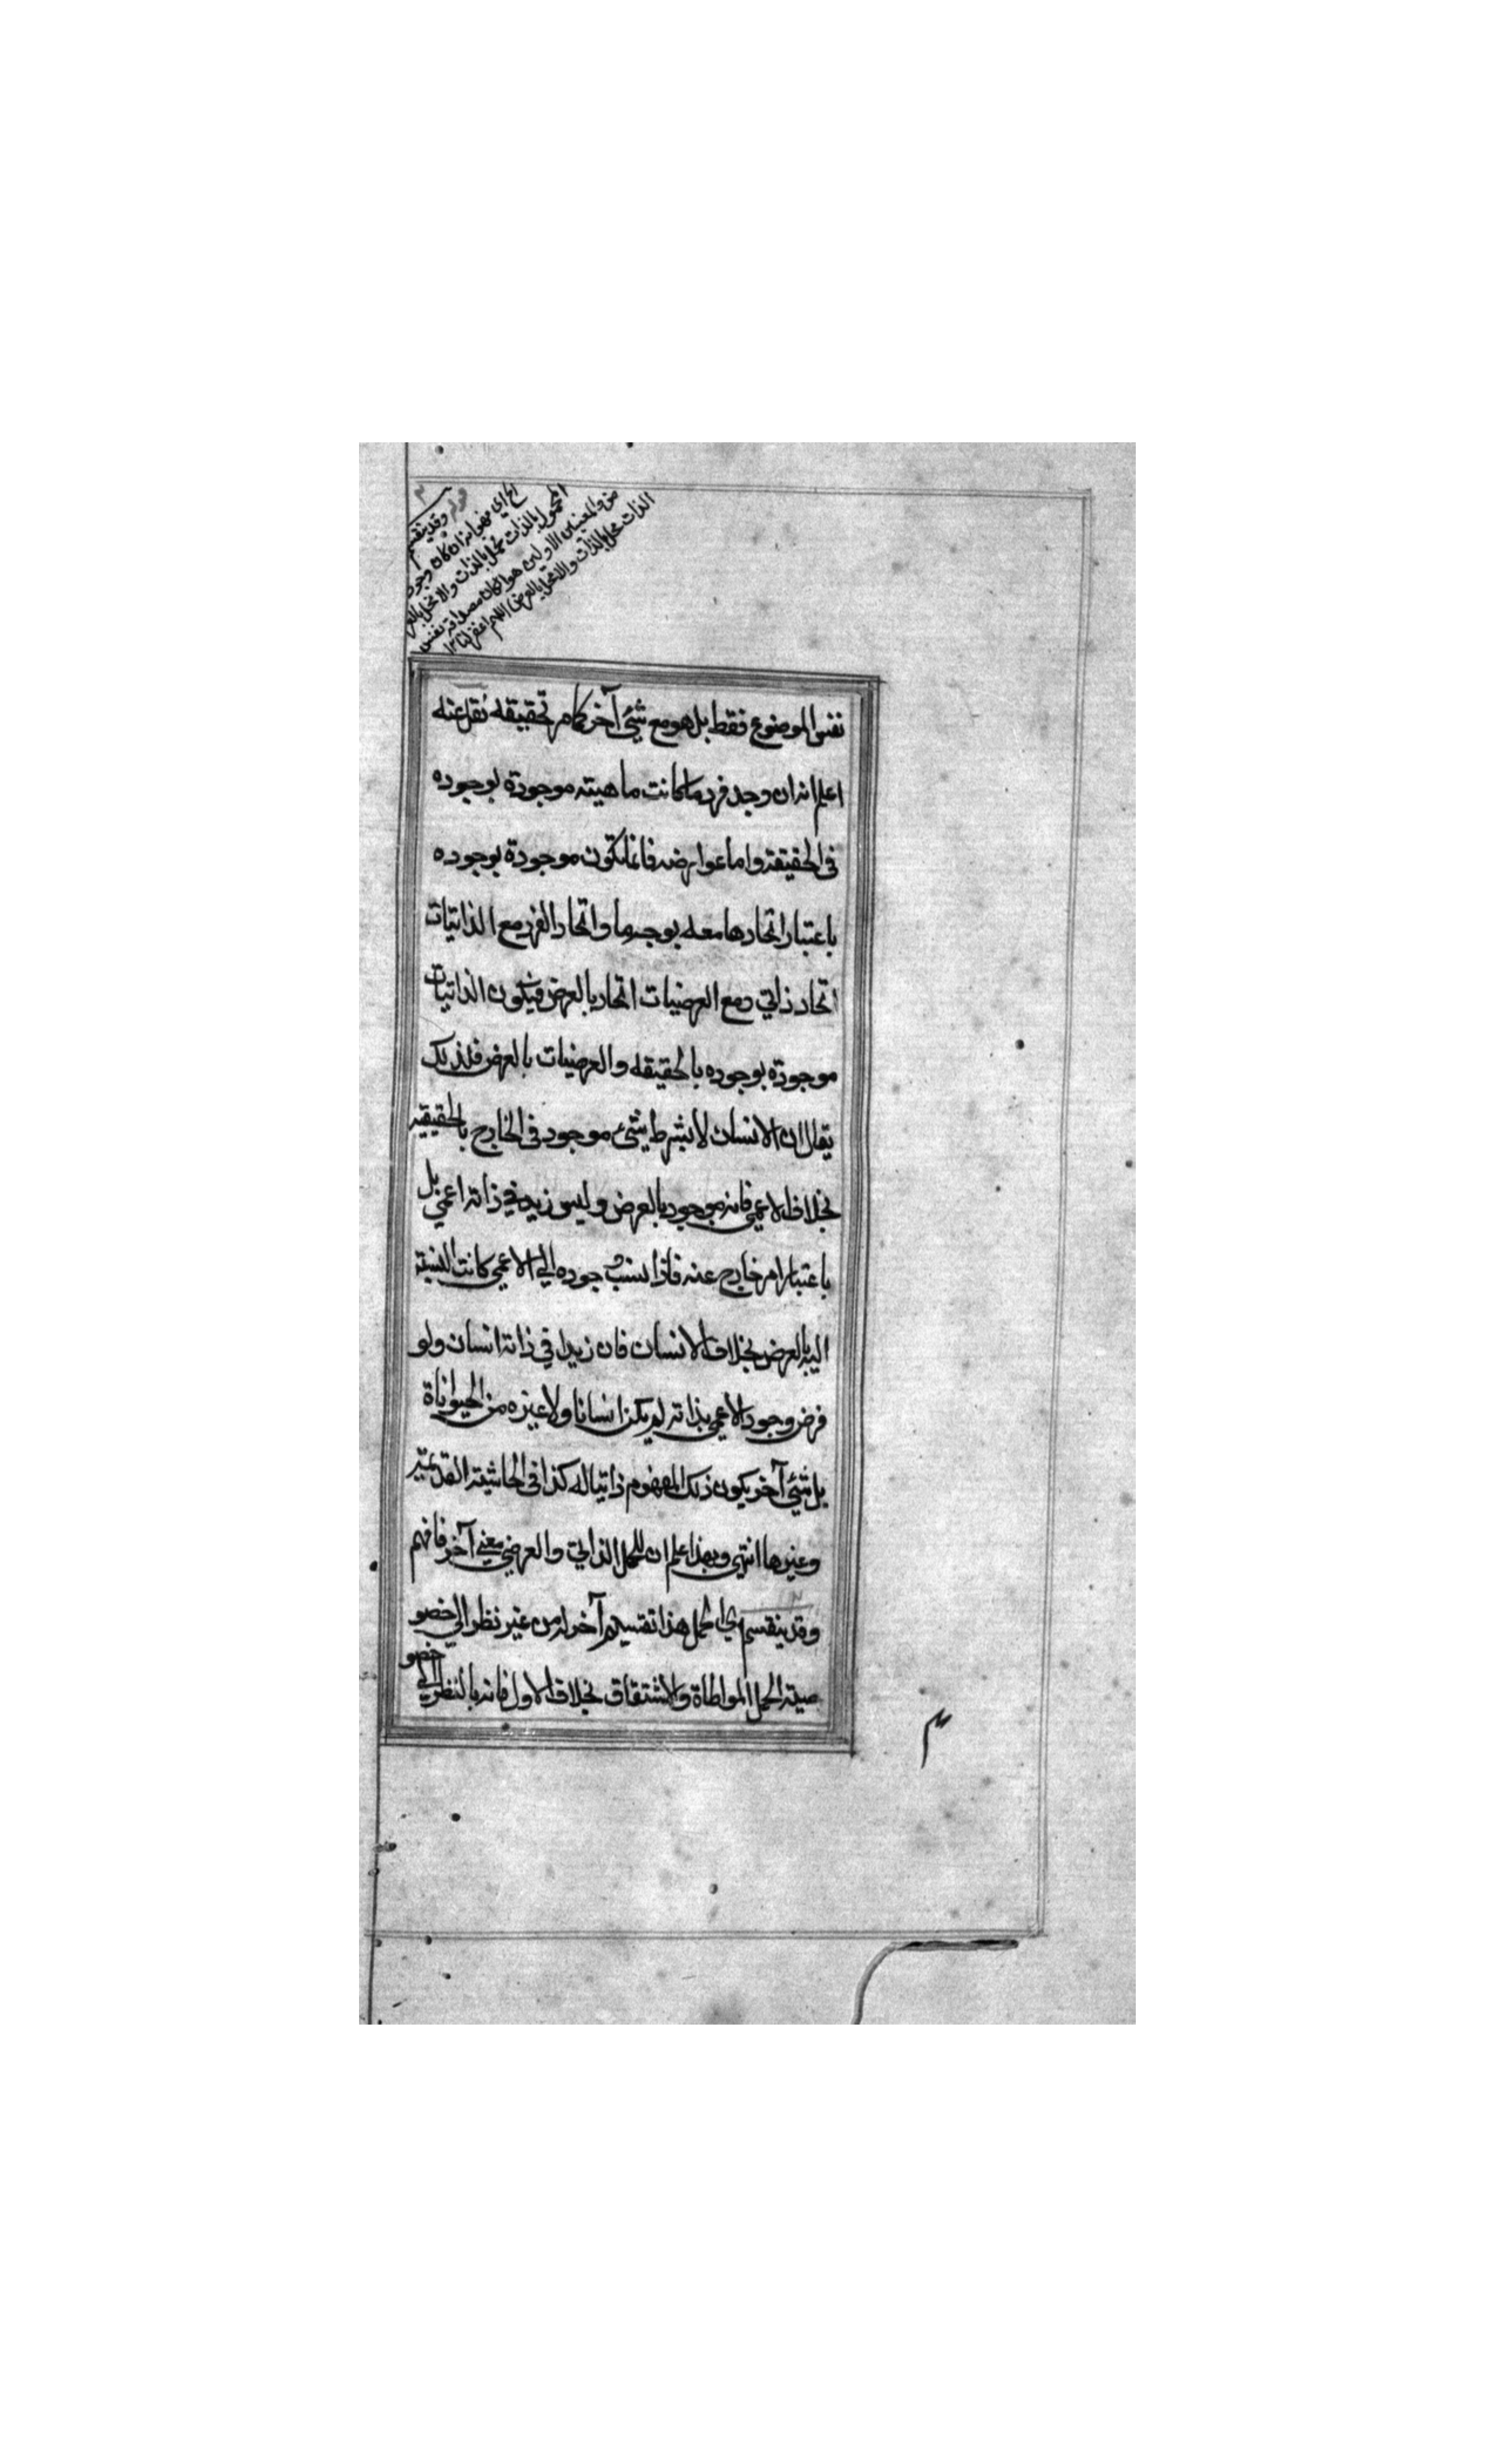 وقد ينقسم
الخ اي مفهوا نه ان كان وجود
المحمول بالذات محمل بالذات والا محمل بالعر
ض والمعنيين الاولين هو ان كان مصداقه نفس
الذات محمل بالذات والا محمل بالعرض اللهم اغفر
نفس الموضوع فقط بل هو مع شئ آخر كما مر تحقيقه نقل عنه
اعلم انه ان وجد فرد ما كانت ماهيته موجودة بوجوده
فى الحقيقة واما عوارضه فانما تكون موجودة بوجوده
باعتبار اتحادها معه بوجه ما واتحاد الفرد مع الذاتيات
اتحاد ذاتي ومع العرضيات اتحاد بالعرض فيكون الذاتيات
موجودة بوجوده بالحقيقه والعرضيات بالعرض فلذلك
يقال ان الانسان لا بشرط شئ موجود فى الخارج بالحقيقة
بخلاف الاعمى فانه موجود بالعرض وليس زيد في ذاته اعمي بل
باعتبار امر خارج عنه فاذا نسب وجوده الي الاعمي كانت النسبة
اليه بالعرض بخلاف الانسان فان زيدا في ذاته انسان ولو
فرض وجود الاعمي بذاته لم يكن انسانا ولا غيره من الحيواناة
بل شئ آخر يكون ذلك المفهوم ذاتيا له كذا فى الحاشية القديمة
وغيرها انتهى وبهذا علم ان للحمل الذاتي والعرضي معني آخر فافهم
وقد ينقسم اي الحمل هذا تقسيم آخر له من غير نظر الي خصو
صية الحمل المواطاة والاشتقاق بخلاف الاول فانه بالنظر الي
خصو